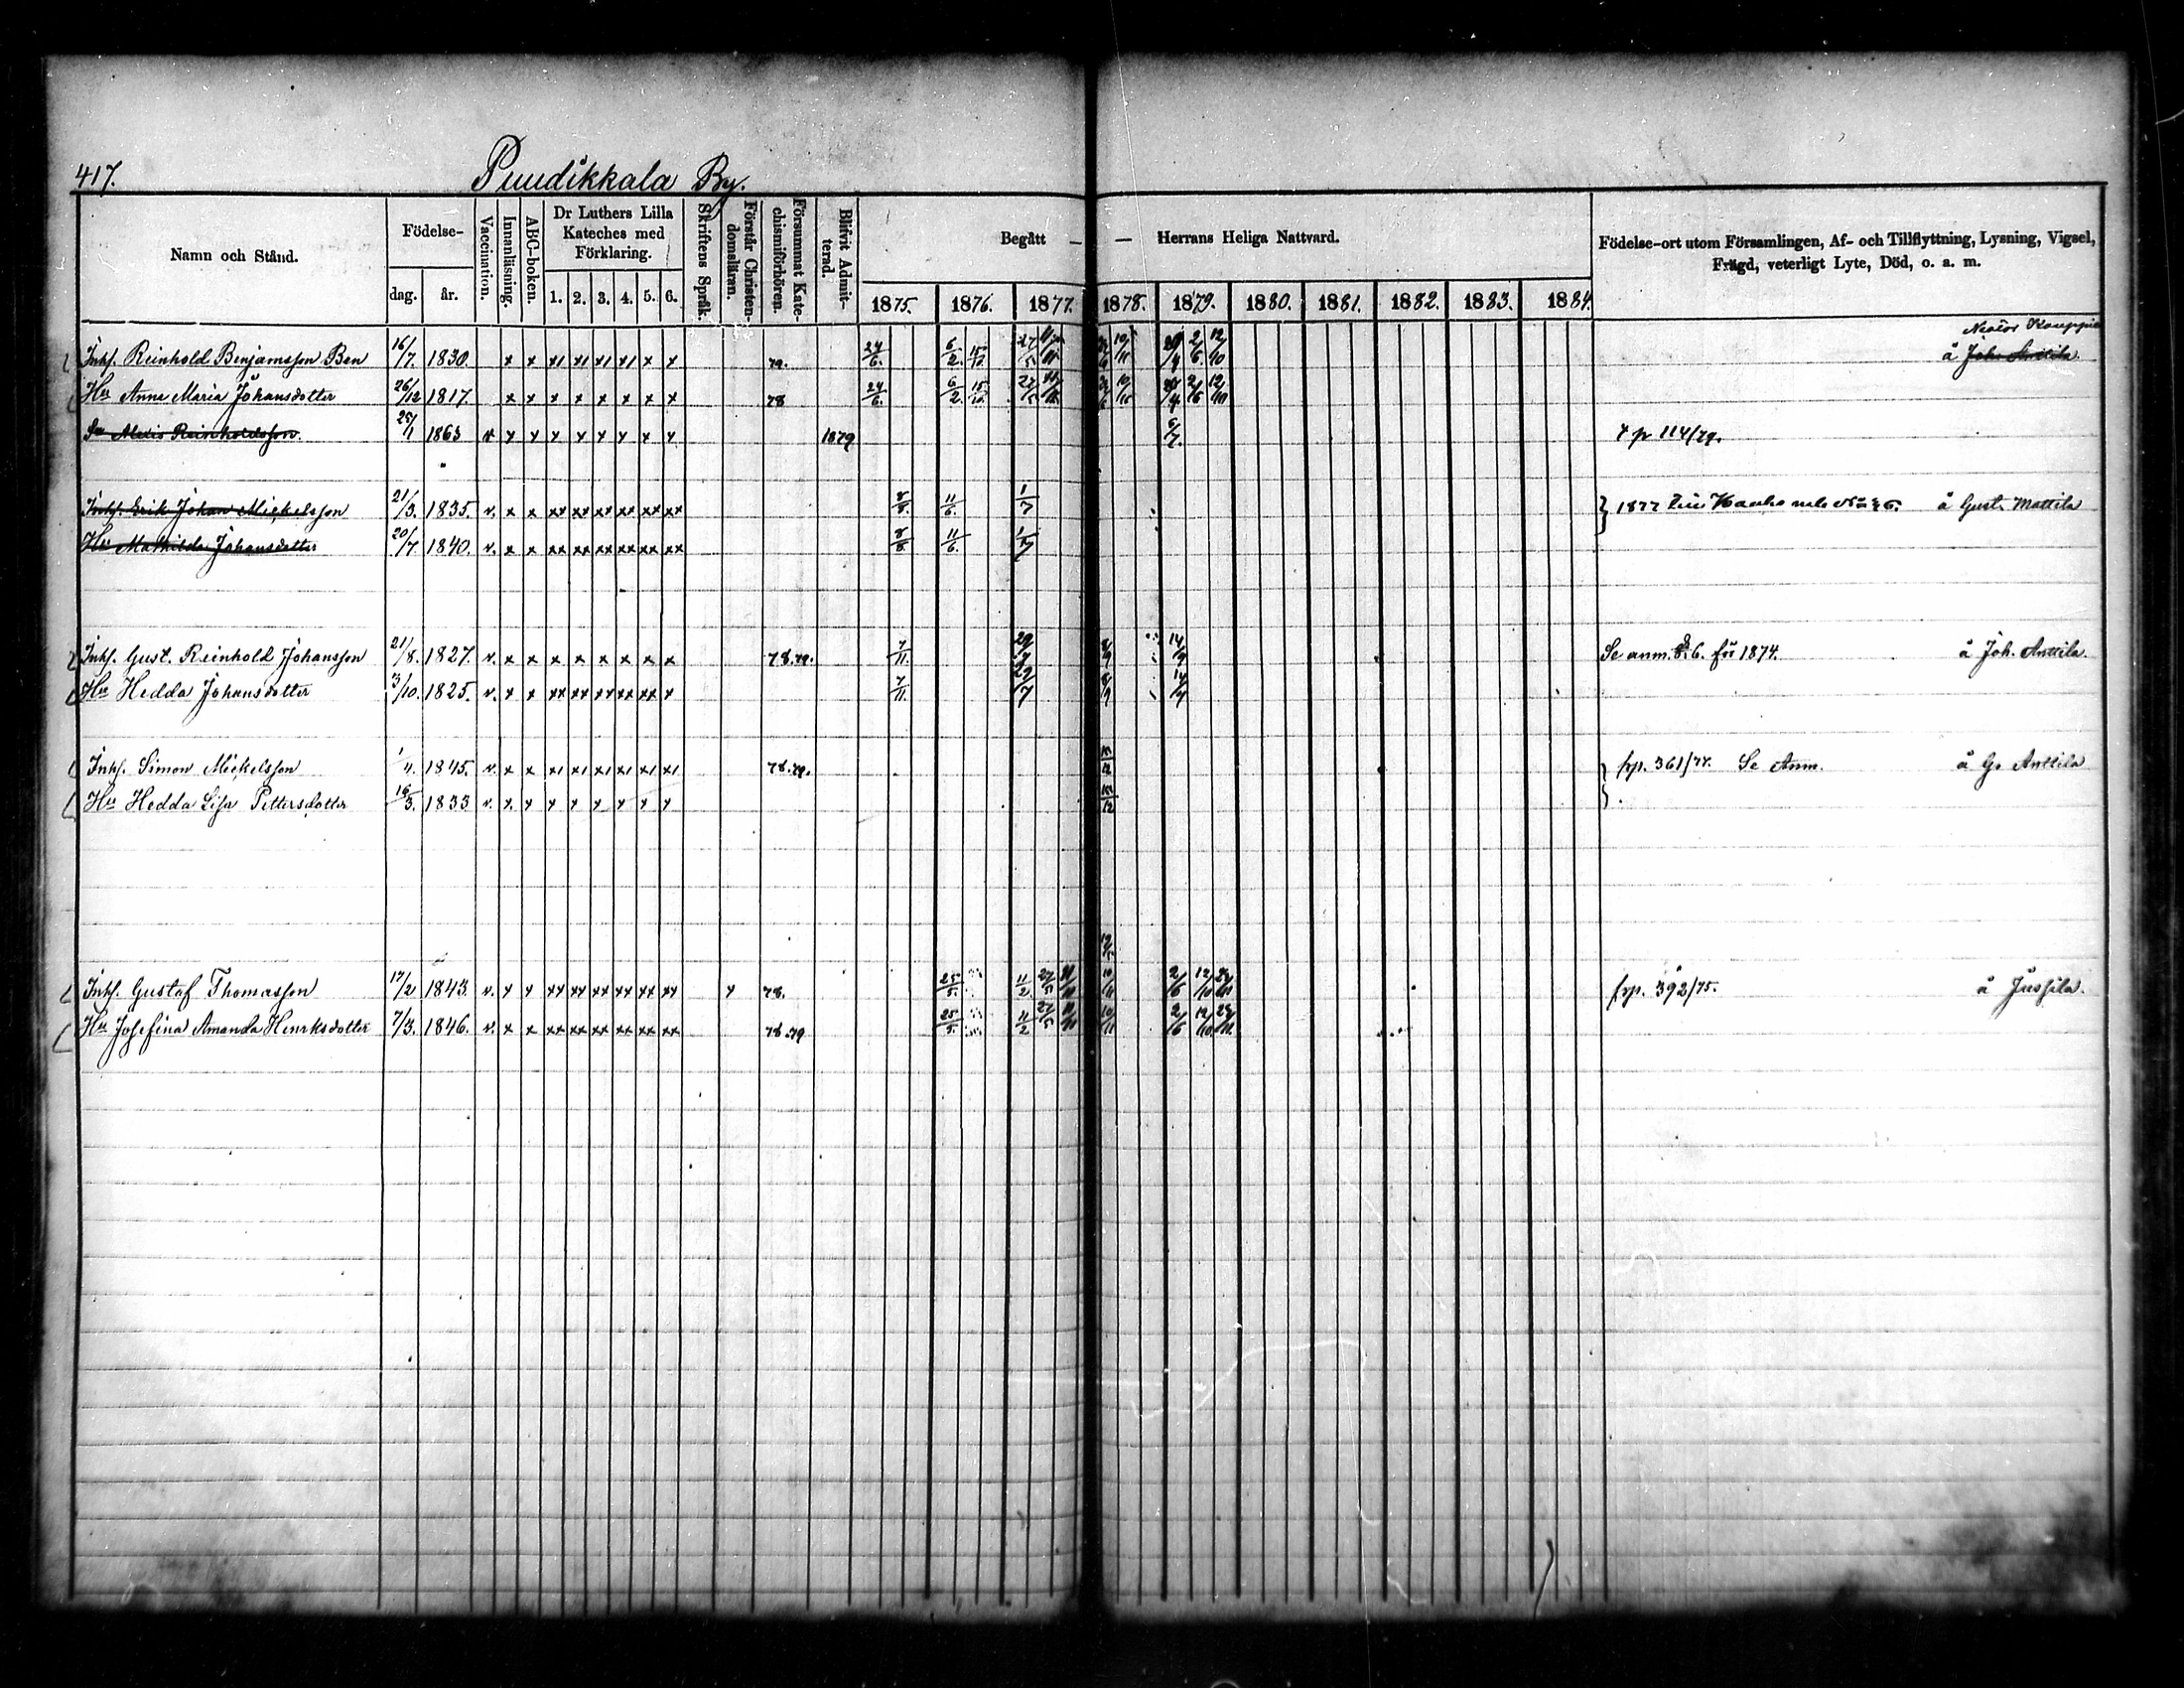 417.
Puudikkala By.
Namn och Stånd. Födelse- Vaccination. Innanläsning. ABC-boken. Dr Luthers Lilla Kateches med Förklaring. Skriftens Språk. Förstår Christendomsläran. Försummat Katechismiförhören. Blifvit Admitterad. Begått — — Herrans Heliga Nattvard. Födelse-ort utom Församlingen, Af- och Tillflyttning, Lysning, Vigsel, Frägd, veterligt Lyte, Död, o. a. m.
dag. år. 1. 2. 3. 4. 5. 6. 1875. 1876. 1877. 1878. 1879. 1880. 1881. 1882. 1883. 1884.
Inhs. Reinhold Benjamsson Ben 16/7. 1830. x x x1 x1 x1 x1 x x 79. 24/6. 6/2. å Joh. Anttila.
Hu Anna Maria Johansdotter 26/12 1817. x x x x x x x x 78 24/6. 6/2.
Sn Alexis Reinholdsson 25/1 1863 v x x x x x x x x 1879 6/7. x p 114/79.
Inhs. Erik Johan Mickelsson 21/3. 1835. v. x x xx xx xx xx xx xx 8/8. 11/6. 1/7 1877 å Gust. Mattila
Hu Mathilda Johansdotter 20/7. 1840. v. x x xx xx xx xx xx xx 8/8. 11/6. 1/7
Inhs. Gust. Reinhold Johansson 21/8. 1827. v. x x x x x x x x 78.79. 7/11. 29/7 8/9 14/9 Se anm. S. 6. för 1874. å Joh. Anttila.
Hu Hedda Johansdotter 3/10. 1825. v. x x xx xx xx xx xx x 7/11. 29/7 8/9 14/9
Inhs. Simon Mickelsson 1/4. 1845. v. x x x1 x1 x1 x1 x1 x1 78.79. 15/12 frp. 361/77. Se Anm. å Gr Anttila
Hu Hedda Lisa Pettersdotter 16/3. 1833 v. x x x x x x x x 15/12
Inhs. Gustaf Thomasson 17/2 1843. v. x x xx xx xx xx xx xx x 78. 25/5. 11/2. 27/5 10/11 2/6 12/10 frp. 392/75. å Jussila.
Hu Josefina Amanda Henrksdotter 7/3. 1846. v. x x xx xx xx xx xx xx 78.79 25/5. 11/2 27/5 10/11 2/6 12/10